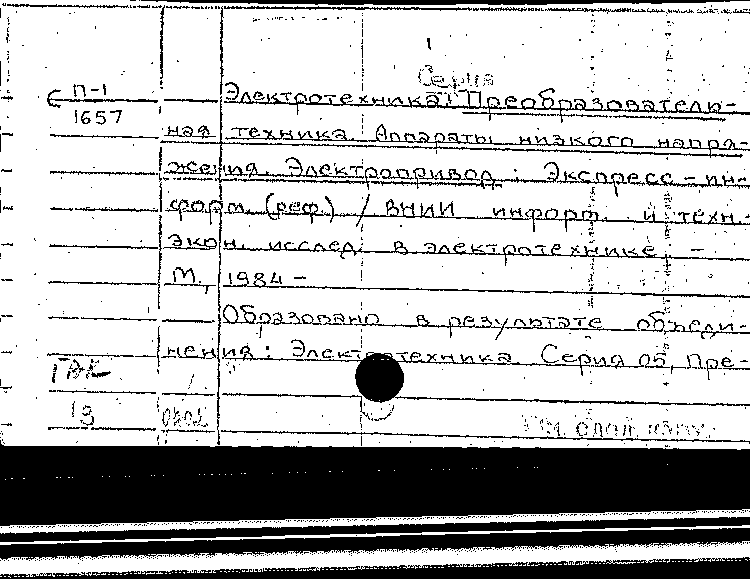 Серия
П-1
1657
Электротехника: Преобразователь-
ная техника. Аппараты низкого напря-
жения. Электропривод : Экспресс-ин-
форм. (реф.) / ВНИИ информ. и техн.-
экон. исслед. в электротехнике. -
М., 1984 -
Образовано в результате объеди-
нения: Электротехника. Серия 05, Пре-
13
См. след. карт.